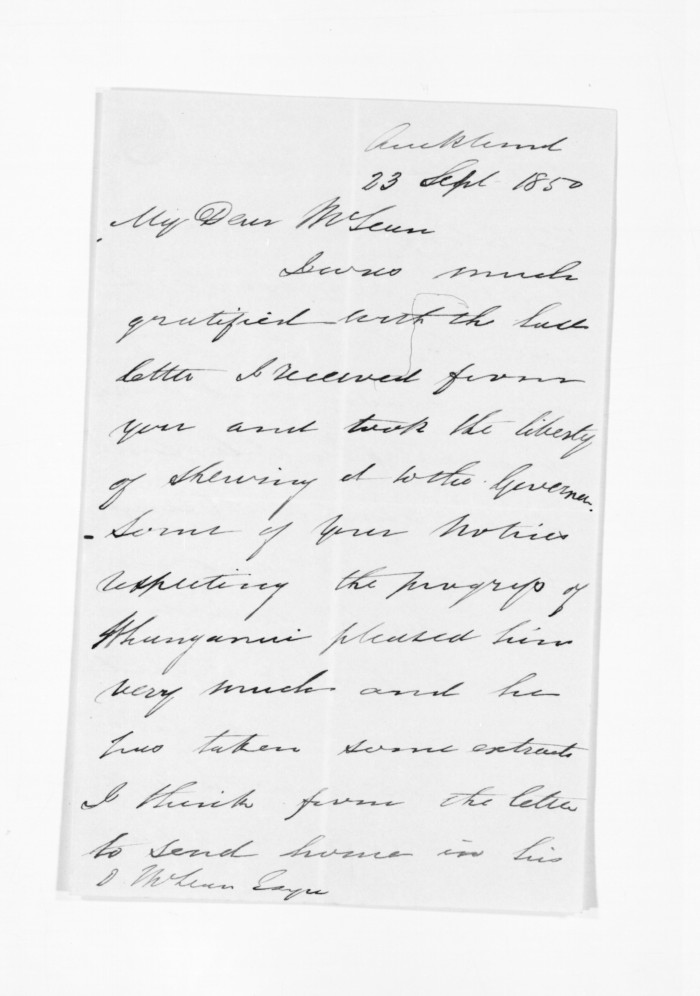 Auckland
23 Sept 1850
My Dear McLean
I was much
gratified with the last
letter I received from
you and took the liberty
of shewing it to the Governor.
Some of your Notices
respecting the progress of
Whanganui pleased him
very much and he
has taken some extracts
I think from the letter
to send home in his
D McLean Esqre